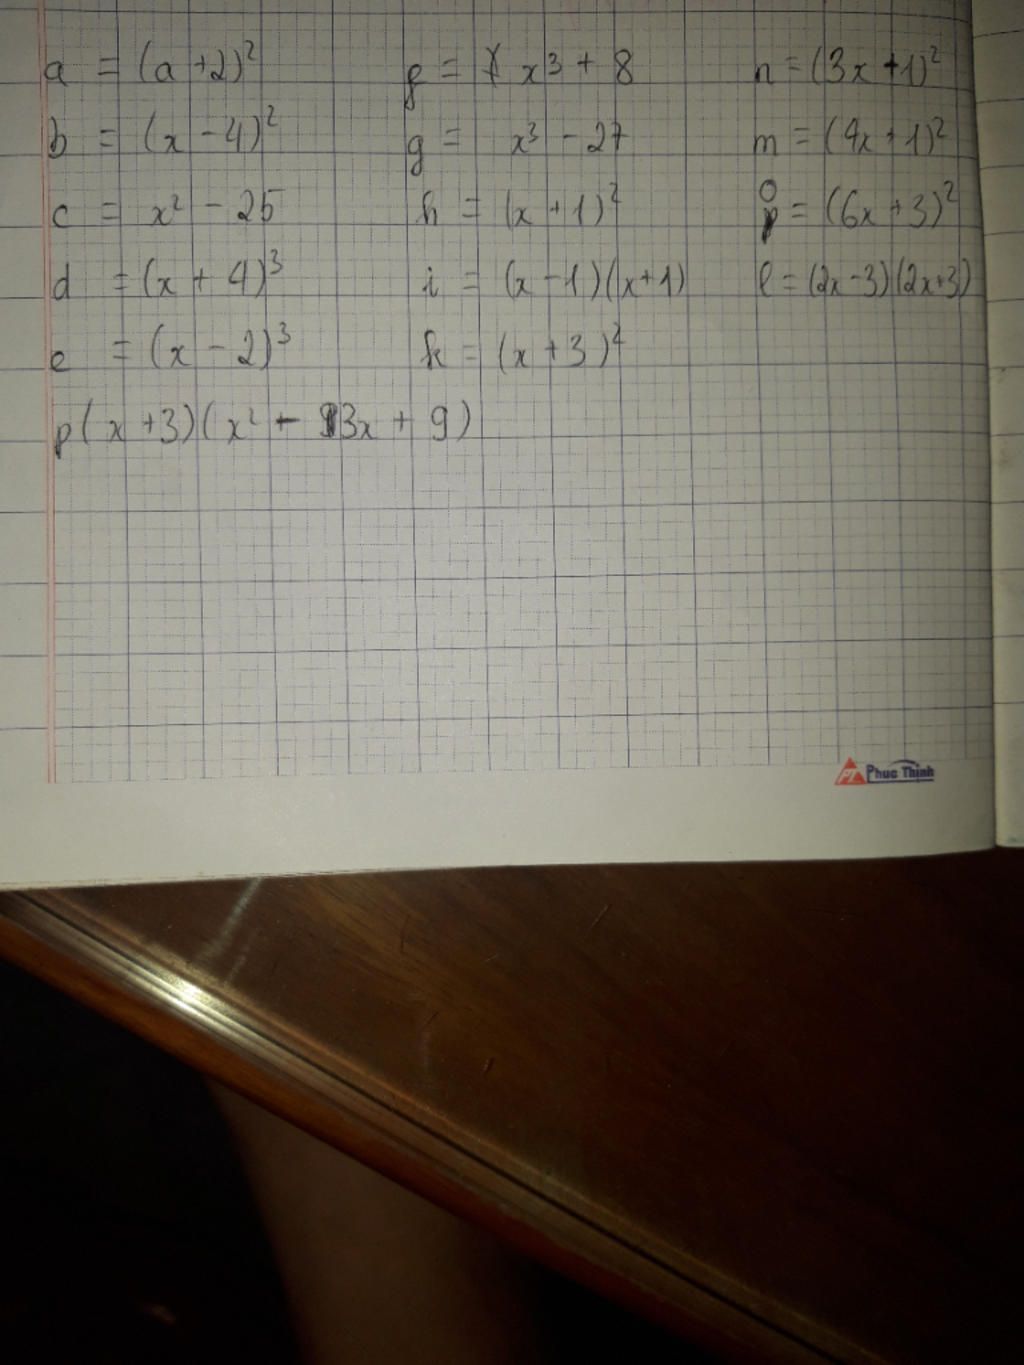 a = (a + 2)²
b = (x - 4)²
c = x² - 25
d = (x + 4)³
e = (x - 2)³
p(x + 3)(x² - 3x + 9)
f = x³ + 8
g = x³ - 27
h = (x + 1)²
i = (x - 1)(x + 1)
k = (x + 3)²
n = (3x + 1)²
m = (4x + 1)²
o = (6x + 3)²
l = (2x - 3)(2x + 3)
PT Phuc Thinh